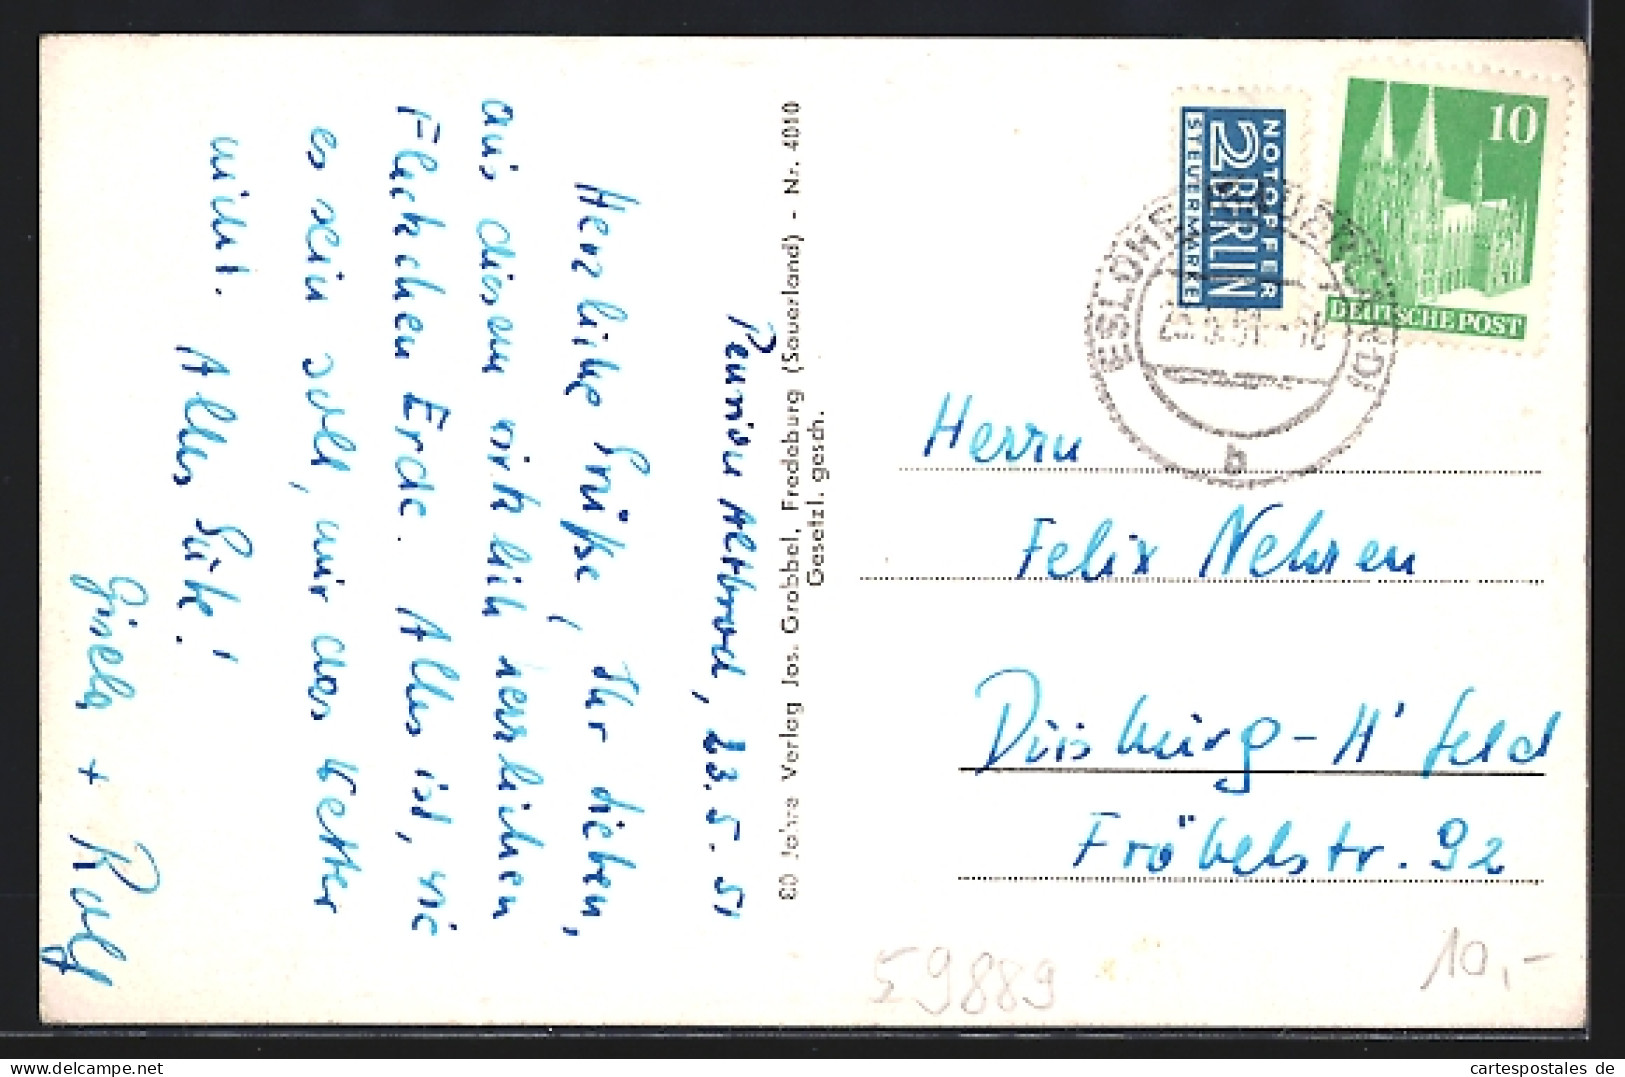 Pension Altbrod, 23.5.51
Herzliche Grüße, Ihr Lieben,
aus diesem wirklich herrlichen
Fleckchen Erde. Alles ist, wie
es sein soll, nur das Wetter
nicht. Alles Gute!
Gisela + Rolf
80 Jahre Verlag Jos. Grobbel, Fredeburg (Sauerland) - Nr. 4010
Gesetzl. gesch.
NOTOPFER
2 BERLIN
STEUERMARKE
10
DEUTSCHE POST
ESLOHE
b
Herrn
Felix Nehren
Duisburg-H'feld
Fröbelstr. 92
59889
10,-
www.cartespostales.de